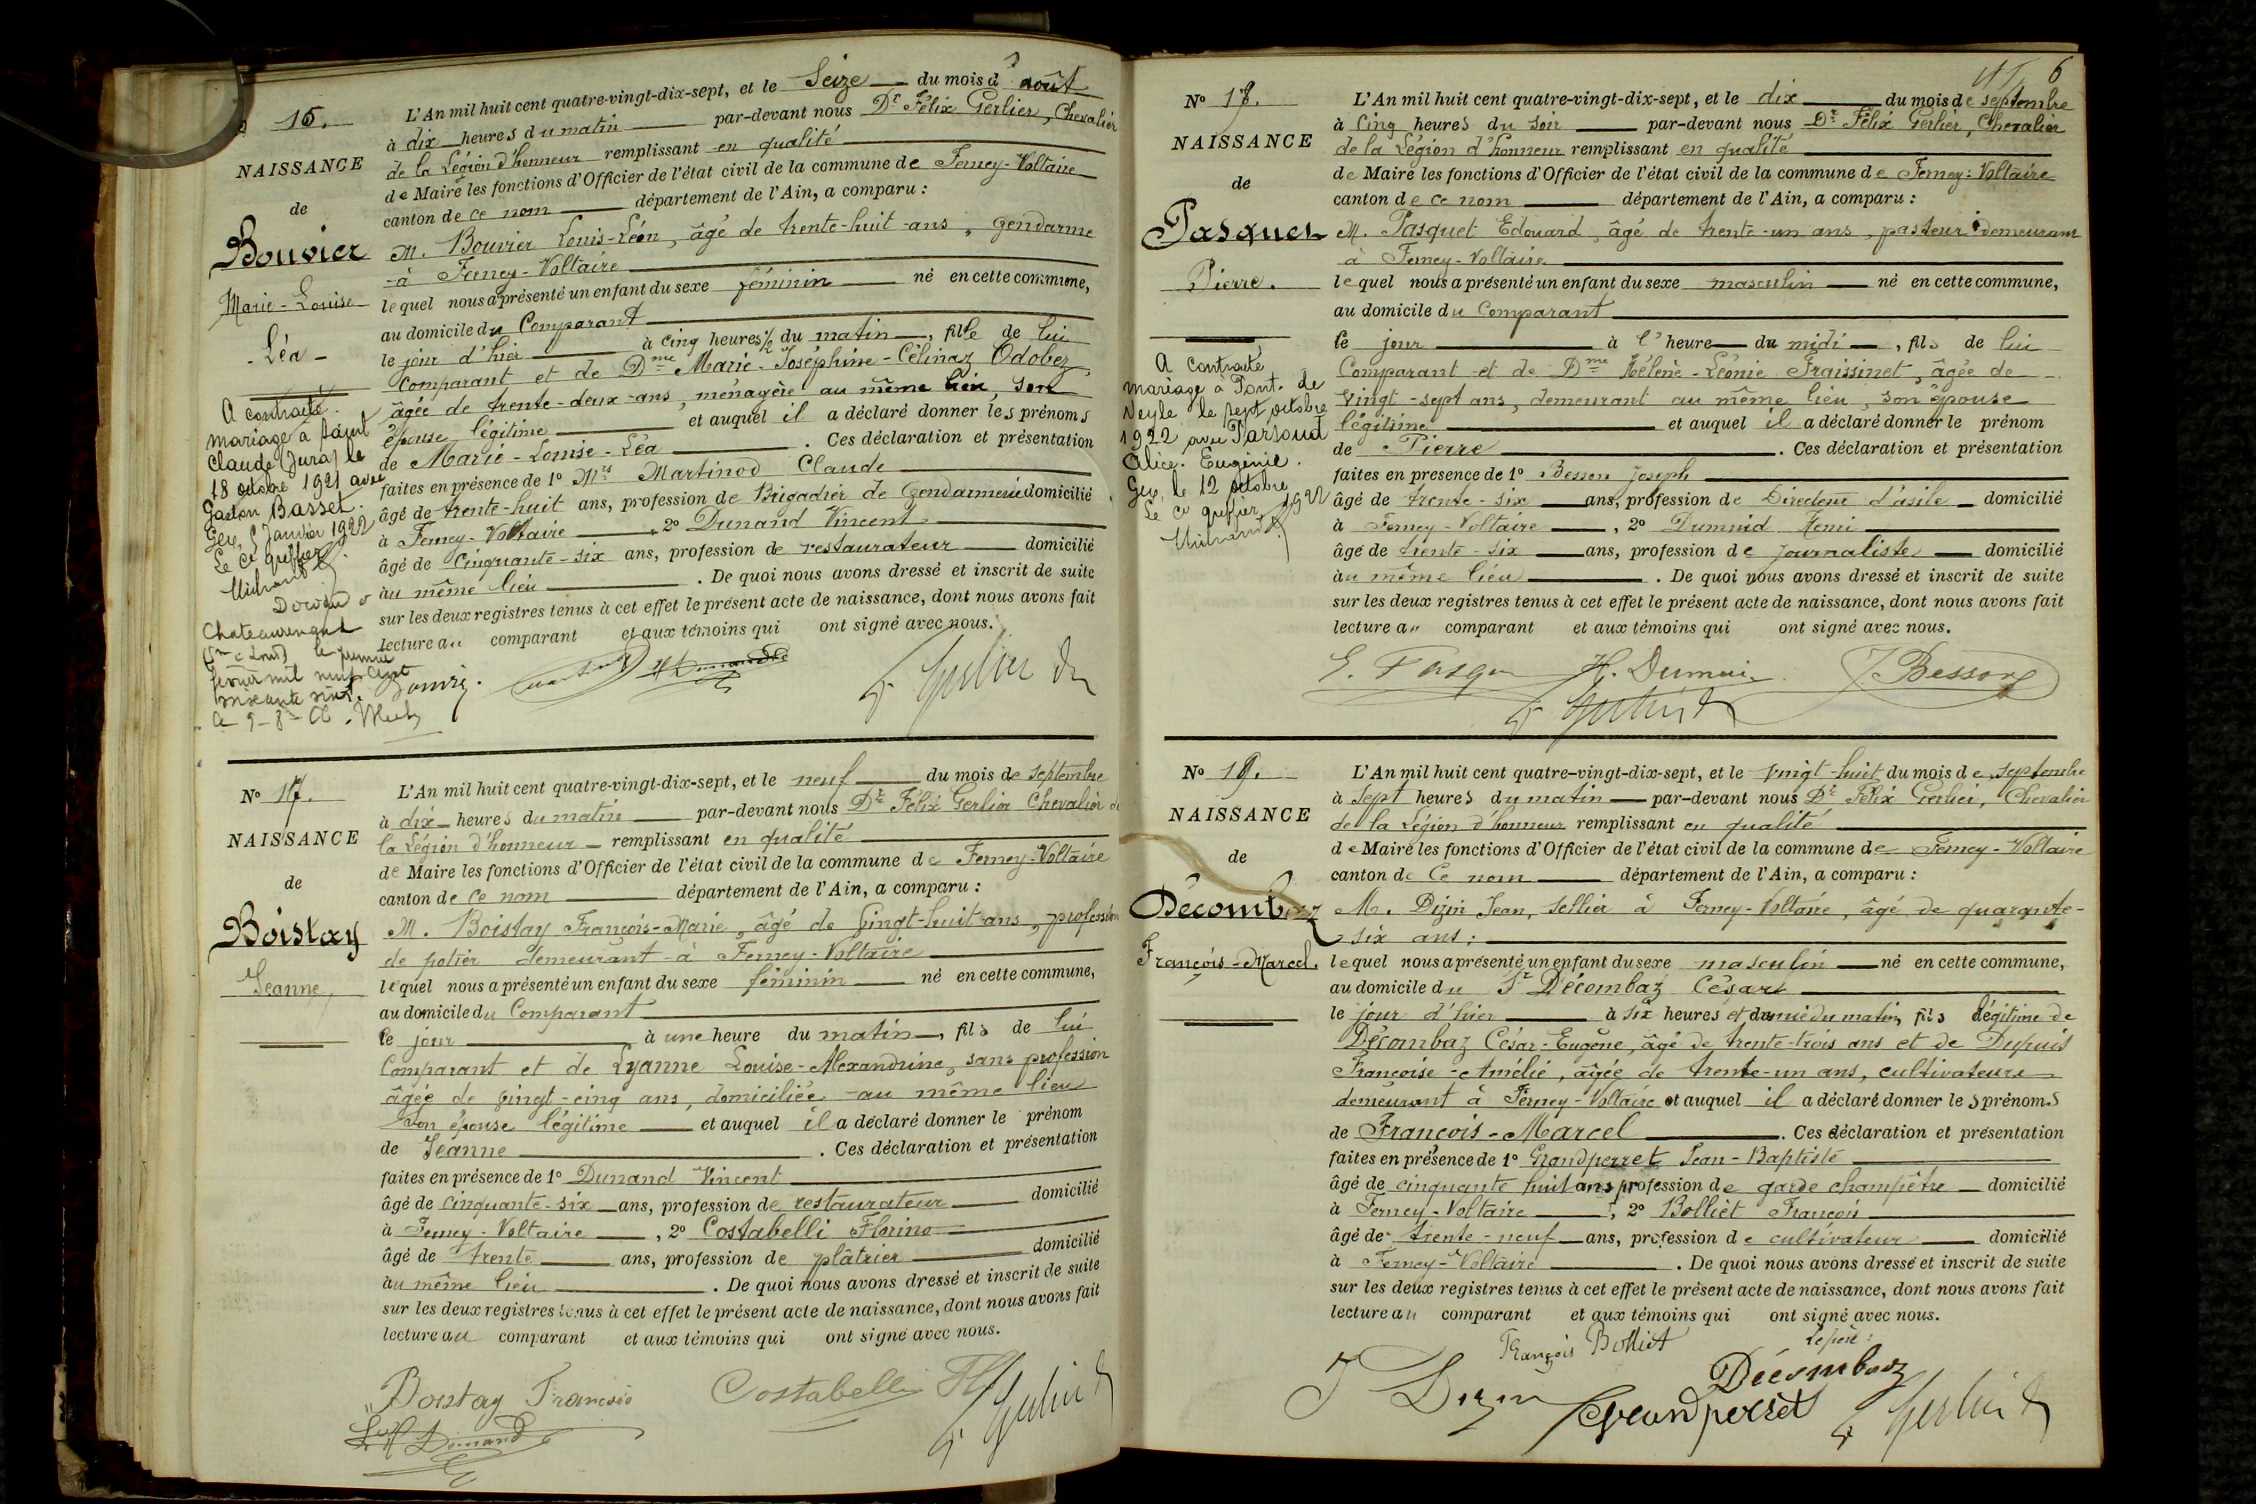 16.
NAISSANCE
de
Bouvier
Marie-Louise
-Léa-
A contracté
mariage à Saint
Claude (Jura) le
18 octobre 1921 avec
Gaston Basset.
Gex, 5 Janvier 1922
Le Cis greffier
L'An mil huit cent quatre-vingt-dix-sept, et le Seize du mois d'août
à dix heures du matin par-devant nous Dr Félix Gerlier, Chevalier
de la Légion d'honneur remplissant en qualité
de Maire les fonctions d'Officier de l'état civil de la commune de Ferney-Voltaire
canton de ce nom département de l'Ain, a comparu :
M. Bouvier Louis-Léon, âgé de trente-huit ans, gendarme
à Ferney-Voltaire
lequel nous a présenté un enfant du sexe féminin né en cette commune,
au domicile du Comparant
le jour d'hier à cinq heures ½ du matin, fille de lui
comparant et de Dme Marie-Joséphine-Célinaz Odobez
âgée de trente-deux ans, ménagère au même lieu, son
épouse légitime et auquel il a déclaré donner les prénoms
de Marie-Louise-Léa . Ces déclaration et présentation
faites en présence de 1º Mrs Martinod Claude
âgé de trente-huit ans, profession de Brigadier de Gendarmerie domicilié
à Ferney-Voltaire, 2º Dunand Vincent
âgé de cinquante-six ans, profession de restaurateur domicilié
au même lieu . De quoi nous avons dressé et inscrit de suite
sur les deux registres tenus à cet effet le présent acte de naissance, dont nous avons fait
lecture au comparant et aux témoins qui ont signé avec nous.
Nº 17.
NAISSANCE
de
Boistay
Jeanne
L'An mil huit cent quatre-vingt-dix-sept, et le neuf du mois de septembre
à dix heures du matin par-devant nous Dr Félix Gerlier Chevalier de
la Légion d'honneur remplissant en qualité
de Maire les fonctions d'Officier de l'état civil de la commune de Ferney-Voltaire
canton de ce nom département de l'Ain, a comparu :
M. Boistay François-Marie, âgé de vingt-huit ans, profession
de potier demeurant à Ferney-Voltaire
lequel nous a présenté un enfant du sexe féminin né en cette commune,
au domicile du Comparant
le jour à une heure du matin, fils de lui
Comparant et de Lyanne Louise-Alexandrine, sans profession
âgée de vingt-cinq ans, domiciliée au même lieu
son épouse légitime et auquel il a déclaré donner le prénom
de Jeanne . Ces déclaration et présentation
faites en présence de 1º Dunand Vincent
âgé de cinquante-six ans, profession de restaurateur domicilié
à Ferney-Voltaire, 2º Costabelli Florino
âgé de trente ans, profession de plâtrier domicilié
au même lieu . De quoi nous avons dressé et inscrit de suite
sur les deux registres tenus à cet effet le présent acte de naissance, dont nous avons fait
lecture au comparant et aux témoins qui ont signé avec nous.
Boistay François Costabelli
6
Nº 18.
NAISSANCE
de
Pasquet
Pierre.
A contracté
mariage à Pont-de
Veyle le sept octobre
1922 avec Parsoud
Alice-Eugénie.
Gex, le 12 octobre 1922
Le Cis greffier
L'An mil huit cent quatre-vingt-dix-sept, et le dix du mois de septembre
à cinq heures du soir par-devant nous Dr Félix Gerlier, Chevalier
de la Légion d'honneur remplissant en qualité
de Maire les fonctions d'Officier de l'état civil de la commune de Ferney-Voltaire
canton de ce nom département de l'Ain, a comparu :
M. Pasquet Edouard, âgé de trente-un ans, pasteur demeurant
à Ferney-Voltaire
lequel nous a présenté un enfant du sexe masculin né en cette commune,
au domicile du Comparant
le jour à l'heure du midi, fils de lui
Comparant et de Dme Hélène-Léonie Fraissinet, âgée de
vingt-sept ans, demeurant au même lieu, son épouse
légitime et auquel il a déclaré donner le prénom
de Pierre . Ces déclaration et présentation
faites en presence de 1º Besson Joseph
âgé de trente-six ans, profession de Directeur d'asile domicilié
à Ferney-Voltaire, 2º Dumuid Henri
âgé de trente-six ans, profession de journaliste domicilié
au même lieu . De quoi nous avons dressé et inscrit de suite
sur les deux registres tenus à cet effet le présent acte de naissance, dont nous avons fait
lecture au comparant et aux témoins qui ont signé avec nous.
J. Besson
Nº 19.
NAISSANCE
de
Décombaz
François-Marcel.
L'An mil huit cent quatre-vingt-dix-sept, et le vingt-huit du mois de septembre
à sept heures du matin par-devant nous Dr Félix Gerlier, Chevalier
de la Légion d'honneur remplissant en qualité
de Maire les fonctions d'Officier de l'état civil de la commune de Ferney-Voltaire
canton de Ce nom département de l'Ain, a comparu :
M. Dizin Jean, sellier à Ferney-Voltaire, âgé de quarante-
six ans;
lequel nous a présenté un enfant du sexe masculin né en cette commune,
au domicile du Sr Décombaz César
le jour d'hier à six heures et demie du matin, fils légitime de
Décombaz César-Eugène, âgé de trente-trois ans et de Dupuis
Françoise-Amélie, âgée de trente-un ans, cultivateurs
demeurant à Ferney-Voltaire et auquel il a déclaré donner les prénoms
de François-Marcel . Ces déclaration et présentation
faites en présence de 1º Grandperret Jean-Baptiste
âgé de cinquante huit ans, profession de garde champêtre domicilié
à Ferney-Voltaire, 2º Bolliet François
âgé de trente-neuf ans, profession de cultivateur domicilié
à Ferney-Voltaire . De quoi nous avons dressé et inscrit de suite
sur les deux registres tenus à cet effet le présent acte de naissance, dont nous avons fait
lecture au comparant et aux témoins qui ont signé avec nous.
François Bolliet Le père :
J Dizin Décombaz
Grandperret